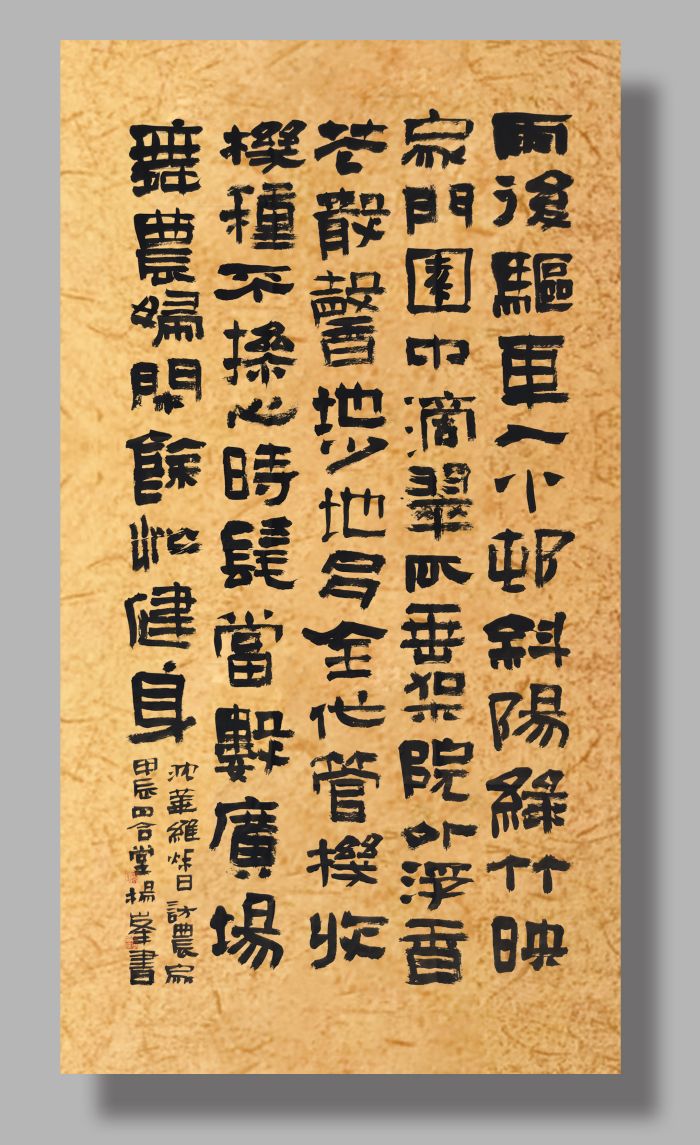 雨後驅車入小邨斜陽綠竹映
家門園中滴翠瓜垂架院外浮香
花散馨地少地多全代管機收
機種不操心時髦當數廣場
舞農婦閑餘也健身
沈華維秋日訪農家
甲辰四合堂楊峯書